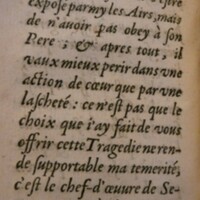 exposé parmy les Airs, mais
de n'auoir pas obey à son
Pere ; & apres tout, il
vaux mieux perir dans vne
action de cœur que par vne
lascheté : ce n'est pas que le
choix que i'ay fait de vous
offrir cette Tragedie ne ren-
de supportable ma temerité,
c'est le chef-d'œuure de Se-